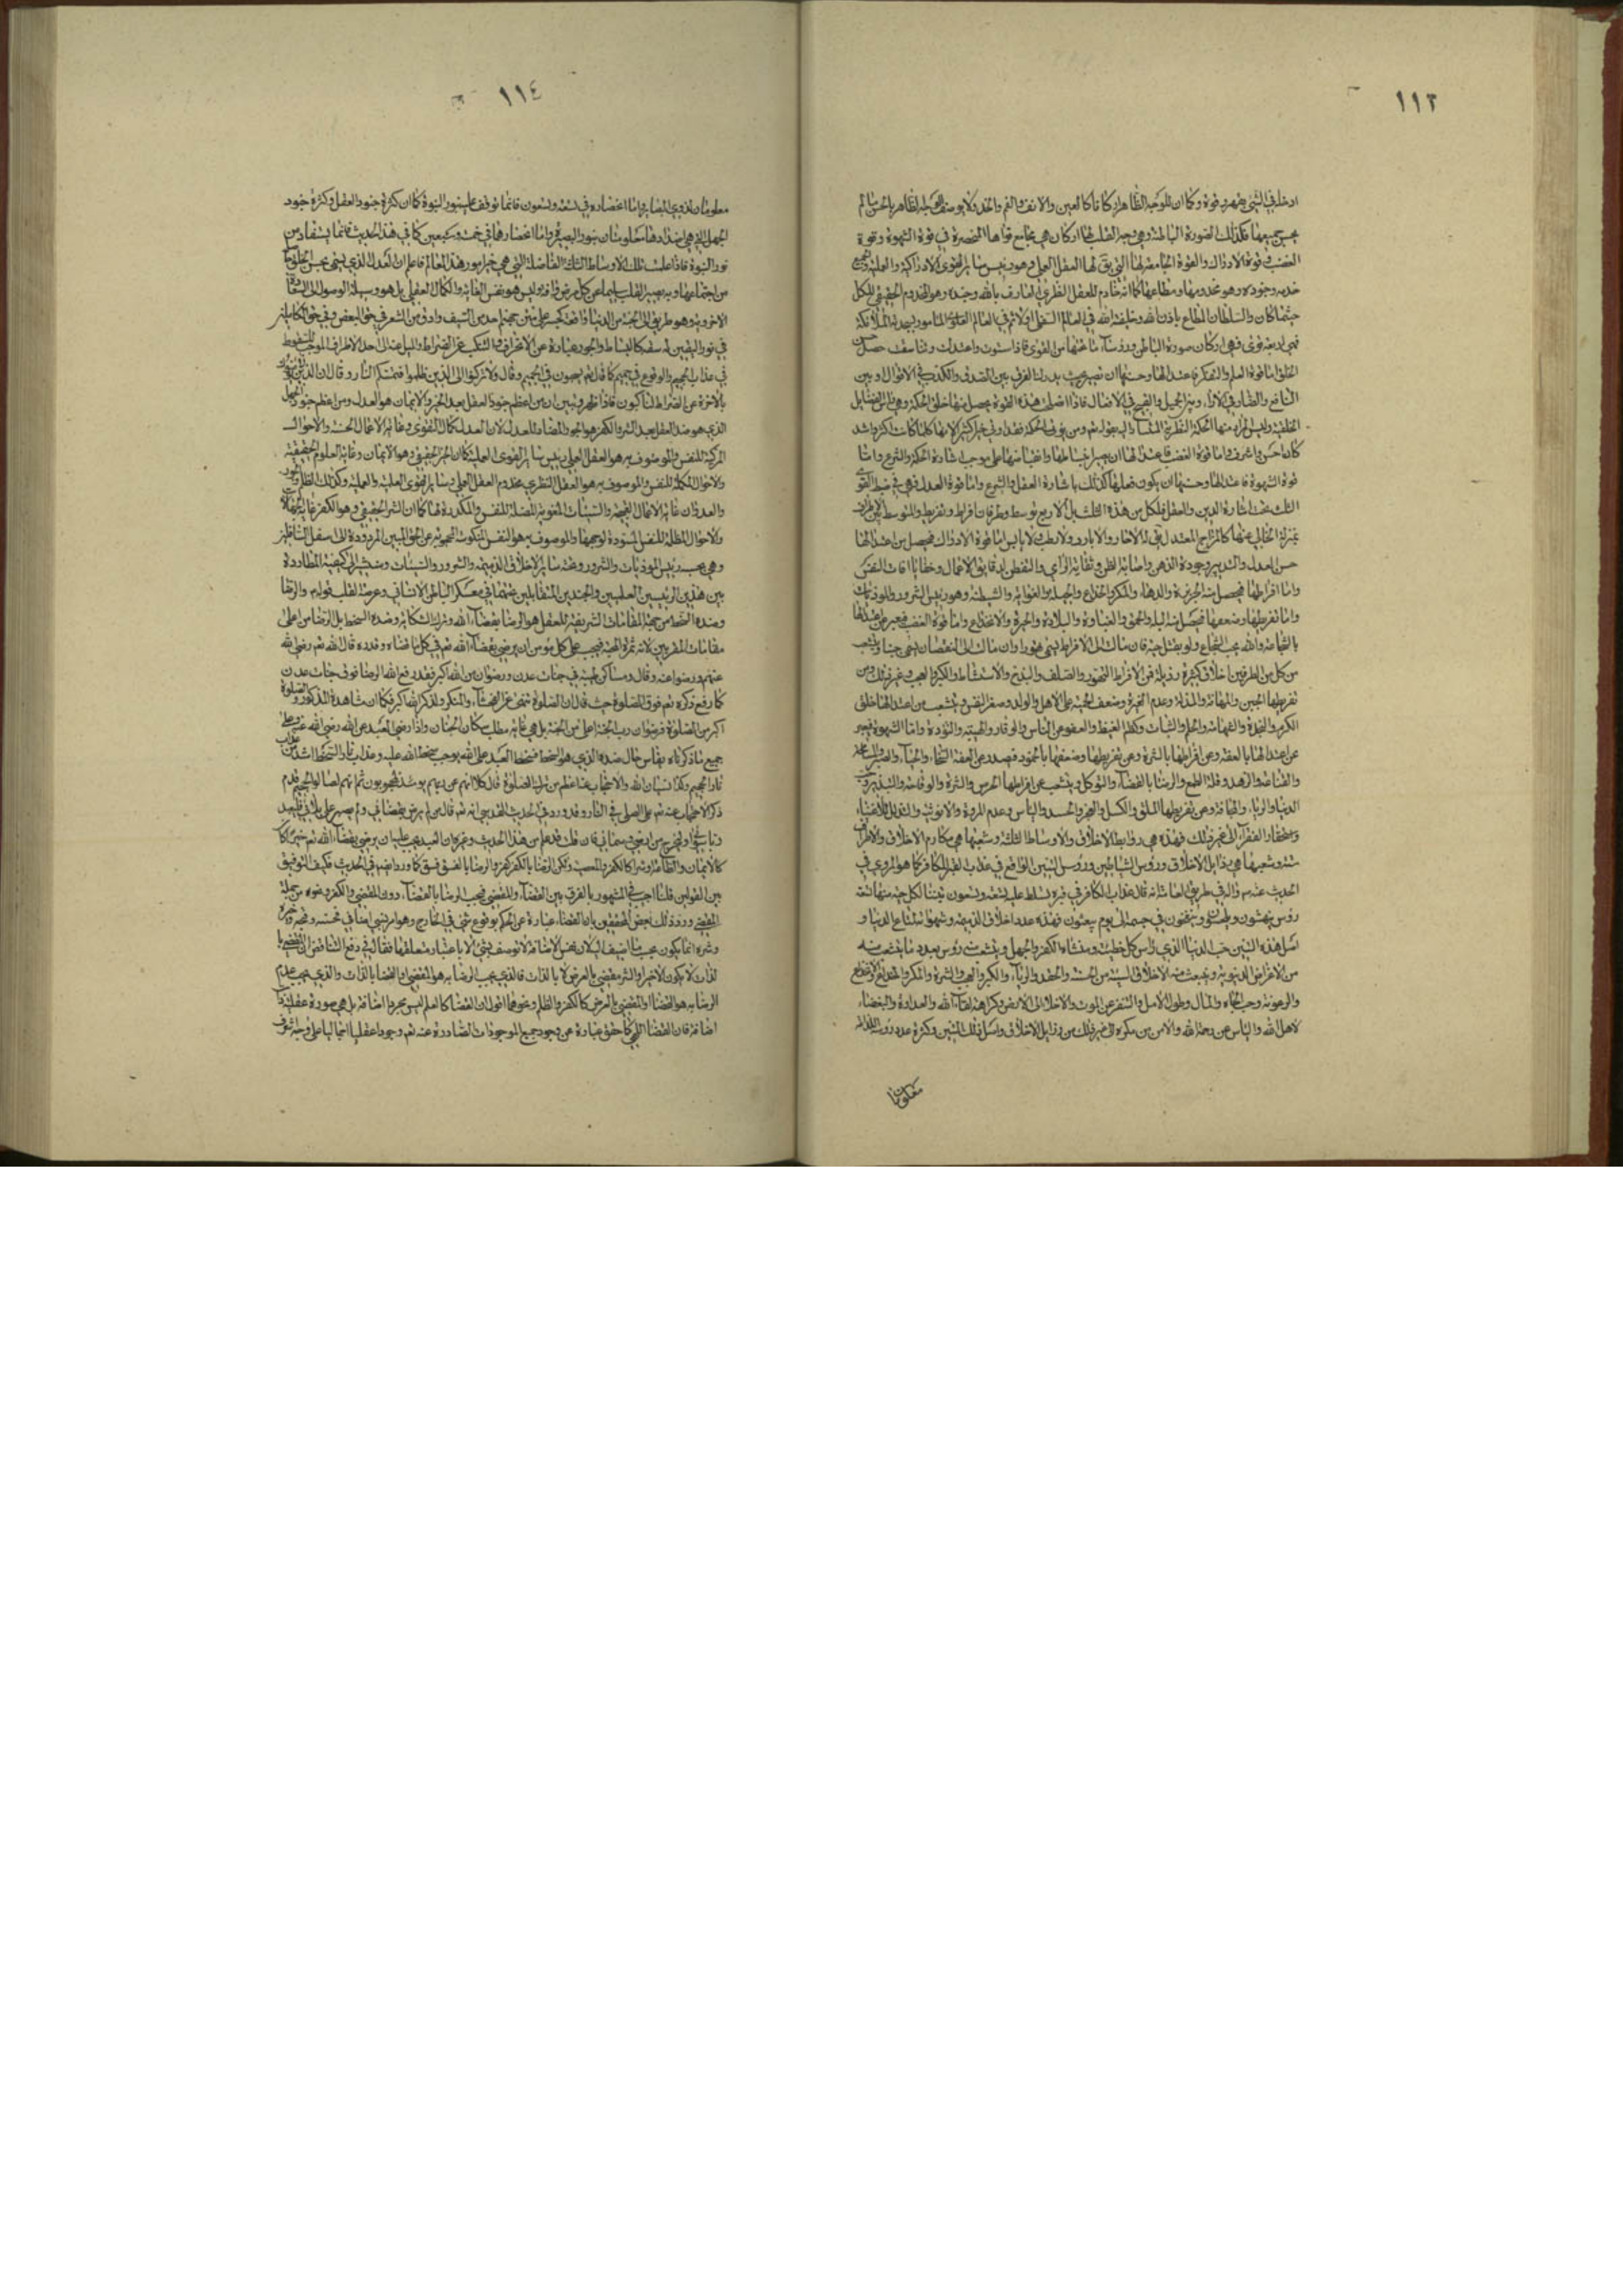 ١١٣
ادخل في الشيء فهو رد قوة وكما ان للوجه الظاهر اركانا كالعين والانف والفم والخد ولا يوصف الوجه الظاهر بالحسن ما لم
يحسن جميعها فكذلك الصورة الباطنة وهي وجه القلب لها اركان هي مجامع قواها المنحصرة في قوة الشهوة وقوة
الغضب وقوة الادراك والقوة الجامعة لها التي يق لها العقل العملي وهو رئيس سائر القوى الادراكية والعملية
خدمه وجنوده وهو مخدومها ومطاعها كما انه خادم للعقل النظري العارف بالله وحده وهو المخدوم الحقيقي للكل
حيثما كان والسلطان المطاع باذن الله وخليفة الله في العالم السفلي اولا ثم في العالم العلوي المامور بسجدته الملائكة
فهي اربعة قوى فهي اركان صورة الباطن ورؤساء ما تحتها من القوى فاذا استوت واعتدلت وتناسقت حصل حسن
الخلق اما قوة العلم والتفكر فاعتدالها وحسنها ان تصير بحيث يدرك الفرق بين الصدق والكذب في الاقوال وبين
النافع والضار في الاراء وبين الجميل والقبيح في الافعال فاذا اصلحت هذه القوة يحصل منها خلق الحكمة وهي راس الفضائل
الخلقية وليس المراد منها الحكمة النظرية المشار اليه بقوله تعم ومن يؤتى الحكمة فقد اوتي خيرا كثيرا لانها كلما كانت اكثر واشد
كان احسن واشرف واما قوة الغضب فاعتدالها ان يصير انبساطها وانقباضها على موجب اشارة الحكمة والشرع واما
قوة الشهوة فاعتدالها وحسنها ان يكون فعلها كذلك باشارة العقل والشرع واما قوة العدل فهي في ضبط القوى
الثلث تحت اشارة الدين والعقل فلكل من هذه الثلث بل الاربع توسط وطرفان افراط وتفريط والمتوسط بين الطرفين
بمنزلة الخالي عنهما كالمزاج المعتدل يق له لا حار ولا بارد ولا رطب ولا يابس اما قوة الادراك فيحصل من اعتدالها
حسن العدل والتدبير وجودة الذهن واصابة الظن وثقابة الراي والتفطن لدقايق الاعمال وخفايا افات النفس
واما افراطها فيحصل منه الجربزة والدهاء والمكر والخداع والحيلة والغواية والشيطنة وهو رئيس الشرور والموذيات
واما تفريطها وضعفها فيحصل منه البله والحمق والغباوة والبلادة والحيرة والانخداع واما قوة الغضب فيعبر عن اعتدالها
بالشجاعة والله يحب الشجاع ولو بقتل حية فان مالت الى الافراط يسمى تهورا وان مالت الى النقصان يسمى جبنا ويتشعب
من كل من الطرفين اخلاق كثيرة رذيلة فمن الافراط التهور والصلف والبذخ والاستشاطة والكبر والعجب وغير ذلك ومن
تفريطها الجبن والمهانة والذلة وعدم الغيرة وضعف الحمية على الاهل والولد وصغر النفس ويتشعب من اعتدالها خلق
الكرم والنجدة والشهامة والحلم والثبات وكظم الغيظ والعفو عن الناس والوقار والهيبة والتؤدة واما الشهوة فيعبر
عن اعتدالها بالعفة وعن افراطها بالشره وعن تفريطها وضعفها بالخمود فيصدر عن العفة السخاء والحياء والصبر والمسامحة
والقناعة والزهد وقلة الطمع والرضا بالقضاء والتوكل ويتشعب عن افراطها الحرص والشره والوقاحة والتبذير وحب
الدنيا والرياء والمجانة وعن تفريطها الملق والكسل والعجز والحسد والياس وعدم المروة والانوثة والتذلل للاغنياء
واستحقار الفقراء الى غير ذلك فهذه هي روابط الاخلاق والاوساط الثلثة وشعبها هي مكارم الاخلاق والاطراف
ستة وشعبها هي رذايل الاخلاق ورؤس الشياطين ورؤس التنين الواقع في عذاب القبر للكافر كما هو المروي في
الحديث عنه ص واله في طريق العامة انه قال عذاب الكافر في قبره يسلط عليه تسعة وتسعون تنينا لكل حية منها تسعة
رؤس ينهشون ويلحسونه وينفخون في جسمه الى يوم يبعثون فهذه عدد اخلاق الذميمة وشهواته لمتاع الدنيا و
اصل هذه التنين حب الدنيا الذي راس كل خطيئة ومنشاه الكفر والجهل ويتشعب منه رؤس بعدد ما يتشعب منه
من الاغراض الدنيوية وينبعث منه الاخلاق السيئة من الحسد والحقد والرياء والكبر والعجب والشره والمكر والخداع
والرعونة وحب الجاه والمال وطول الامل والتنفر عن الموت والاخلاد الى الارض وكراهة لقاء الله والعداوة والبغضاء
لاهل الله والياس عن رحمة الله والامن من مكره الى غير ذلك من رذايل الاخلاق واصل ذلك التنين وكثرة عدد رؤسه
معلومتان
١١٤
معلومتان لذوي البصاير واما انحصاره في تسعة وتسعون فانما توقف عليه بنور النبوة كما ان كثرة جنود العقل وكثرة جنود
الجهل التي هي اضدادها معلومتان بنور البصيرة واما انحصارها في خمسة وسبعين كما في هذا الحديث فانما يستفاد من
نور النبوة فاذا علمت تلك الاوساط الثلثة الفاضلة التي هي خير امور هذا العالم فاعلم ان العدل الذي يسمى بحسن الخلق
من اجتماعها وبه يصير القلب سليما عن كل مرض وافة وليس هو نفس الغاية والكمال العقلي بل هو وسيلة الوصول الى السعادة
الاخروية وهو طريق الى الجنة من الدنيا واقعة كجسر على متن جهنم احد من السيف وادق من الشعر في حق البعض وفي حق الكاملين
في نور اليقين له سعة كالبساط والجور عبارة عن الانحراف والتنكب عن الصراط والميل عنه الى احد الاطراف الموجب للسقوط
في عذاب الجحيم والوقوع في جهنم كما قال تعم يصبون في الجحيم وقال ولا تركنوا الى الذين ظلموا فتمسكم النار وقال ان الذين لا يؤمنون
بالاخرة عن الصراط لناكبون فاذا ظهر وتبين ان من اعظم جنود العقل بعد الخير والايمان هو العدل ومن اعظم جنود الجهل
الذي هو ضد العقل بعد الشر والكفر هو الجور المضاد للعدل لان العدل كمال التقوى وغاية الاعمال الحسنة والاحوال
المزكية للنفس والموصوف به هو العقل العملي رئيس سائر القوى العملية كما ان الخير الحقيقي وهو الايمان وغاية العلوم الحقيقية
والاحوال المكملة للنفس والموصوف به هو العقل النظري مخدوم العقل العملي وسائر القوى العلمية والعملية وكذلك الظلم والجور
والعدوان غاية الاعمال القبيحة والسيئات المغوية المضلة للنفس والمكدرة لها كما ان الشر الحقيقي وهو الكفر غاية الجهالات
والاحوال المظلمة للنفس المسودة لوجهها والموصوف به هو النفس المنكوسة المحجوبة عن الحق المبين المردودة الى اسفل السافلين
وهي بحسبه رئيس الموذيات والشرور وتحته سائر الاخلاق الذميمة والشرور والسيئات وسنشير الى كيفية المطاردة
بين هذين الرئيسين العظيمين والجندين المتقابلين تحتهما في معسكر الباطن الانساني وعرصة القلب قوله م والرضا
وضده السخط من جملة المقامات الشريفة للعقل هو الرضا بقضاء الله وترك الشكاية وضده السخط بل الرضا من اعلى
مقامات المقربين لانه ثمرة المحبة فيجب على كل مؤمن ان يرضى بقضاء الله تعم في كل ما قضاه وقدره قال الله تعم رضي الله
عنهم ورضوا عنه وقال ومساكن طيبة في جنات عدن ورضوان من الله اكبر فقد رفع الله الرضا فوق جنات عدن
كما رفع ذكره تعم فوق الصلوة حيث قال ان الصلوة تنهى عن الفحشاء والمنكر ولذكر الله اكبر فكما ان مشاهدة المذكور في الصلوة
اكبر من الصلوة فرضوان رب الجنة اعلى من الجنة بل هي غاية مطلب سكان الجنان واذا رضي العبد عن الله رضي الله عنه
جميع ما ذكرناه يقاس حال ضده الذي هو السخط فسخط العبد على الله يوجب سخط الله عليه وعذاب نار السخط اشد من عذاب
نار الجحيم وكذا نسيان الله والاحتجاب عنه اعظم من ترك الصلوة قال كلا انهم عن ربهم يومئذ لمحجوبون ثم انهم لصالوا الجحيم قدم
ذكر الاحتجاب عنه تعم على الصلي في النار وقد ورد في الحديث القدسي انه تعم قال من لم يرض بقضائي ولم يصبر على بلائي فليعبد
ربا سواي وليخرج من ارضي وسمائي فان قلت قد علم من هذا الحديث وغيره ان العبد يجب عليه ان يرضى بقضاء الله تعم خيرا كان
كالايمان والطاعة او شرا كالكفر والمعصية ولكن الرضا بالكفر كفر والرضا بالفسق فسق كما ورد ايضا في الحديث فكيف التوفيق
بين القولين قلنا اجيب في المشهور بالفرق بين القضاء والمقضي فيجب الرضا بالقضاء دون المقضي والكفر ونحوه من جملة
المقضي ورد ذلك بعض المحققين بان القضاء عبارة عن الحكم بوقوع شيء في الخارج وهو امر نسبي اضافي فحسنه وقبحه وخيره
وشره انما يكون بحسب ما اضيف اليه لان نفس الاضافة لا توصف بشيء الا باعتبار متعلقها فقال في دفع التناقض ان المقضي
بالذات لا يكون الا خيرا والشر مقضي بالعرض لا بالذات فالذي يجب الرضا به هو المقضي والقضا بالذات والذي يجب عدم
الرضا به هو القضا او المقضي بالعرض كالكفر والظلم ونحوهما اقول ان القضا كالعلم ليس مجرد اضافة بل هي صورة عقلية ذات
اضافة فان القضا الالهي كما حقق عبارة عن وجود جميع الموجودات الصادرة عنه تعم وجودا عقليا اجماليا على وجه اشرف